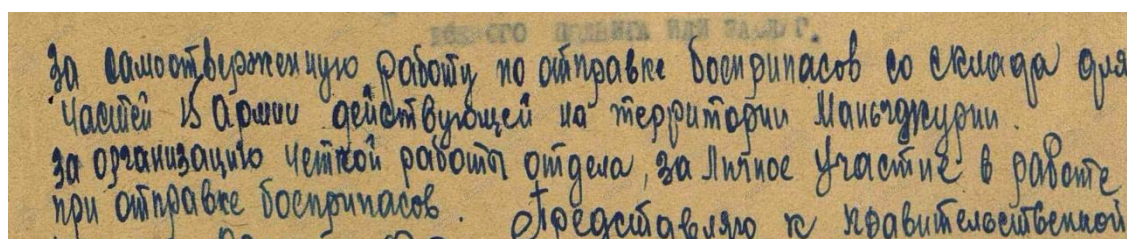 подвига или заслуг.
За самоотверженную работу по отправке боеприпасов со склада для
частей 15 Армии действующей на территории Маньчжурии.
за организацию четкой работы отдела, за личное участие в работе
при отправке боеприпасов. Представляю к правительственной